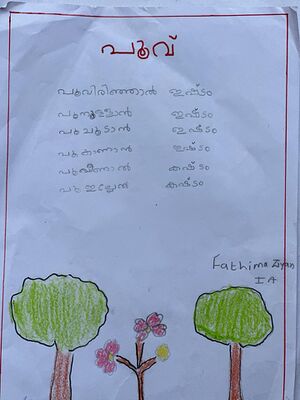 പൂവ്
പൂവിരിഞ്ഞാൽ ഇഷ്ടം
പൂനുള്ളാൻ ഇഷ്ടം
പൂ ചൂടാൻ ഇഷ്ടം
പൂ കാണാൻ ഇഷ്ടം
പൂ കഷ്ടം
പൂ കഷ്ടം
Fathima Ziyan
I A